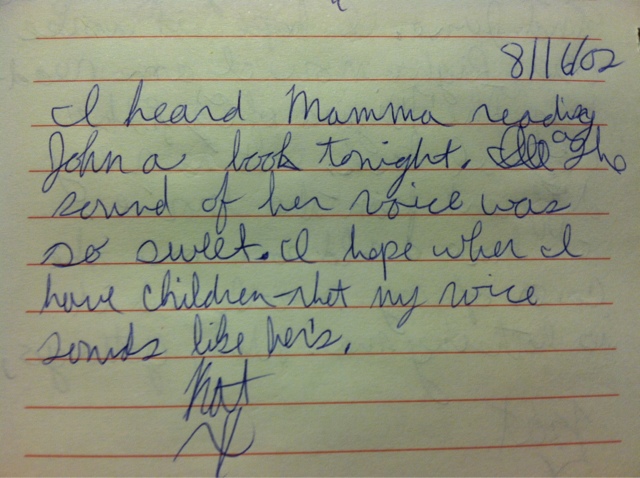 8/16/02
I heard Mamma reading
John a book tonight. The
sound of her voice was
so sweet. I hope when I
have children that my voice
sounds like her's.
Kat